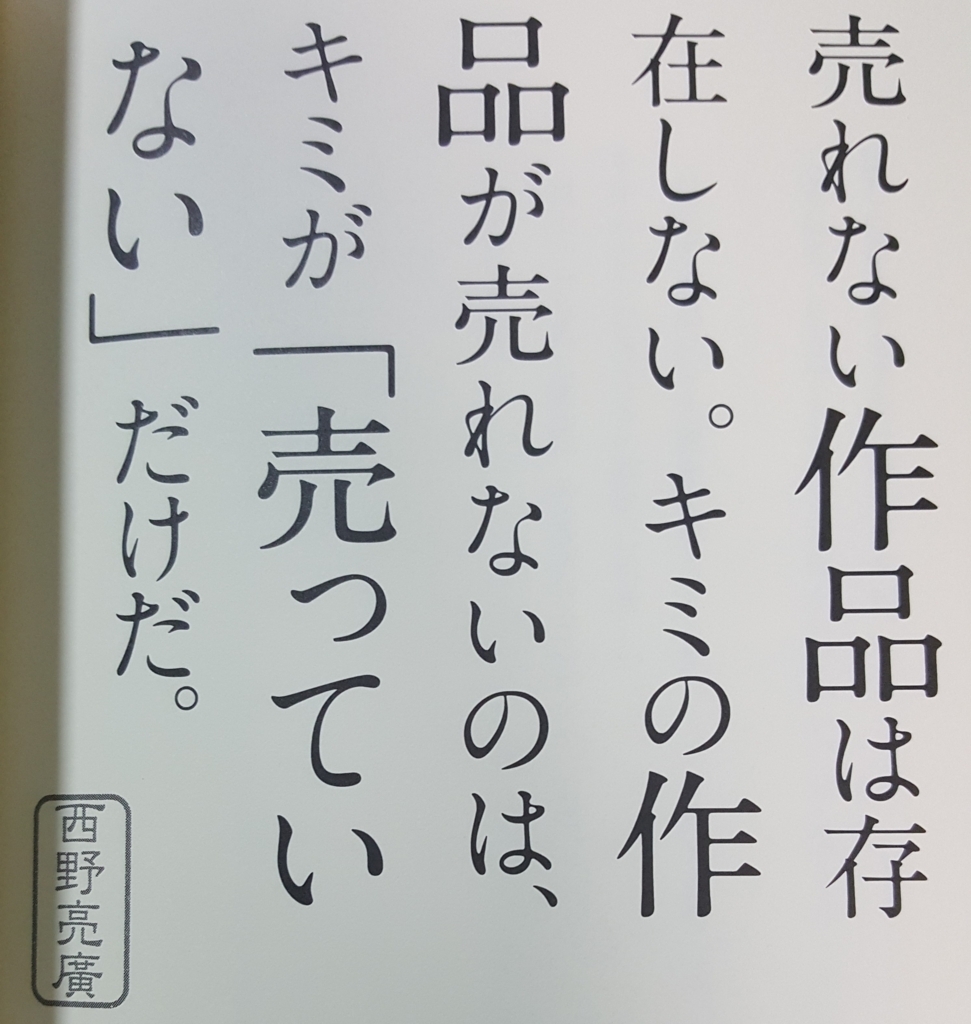 売れない作品は存
在しない。キミの作
品が売れないのは、
キミが「売ってい
ない」だけだ。
西野亮廣